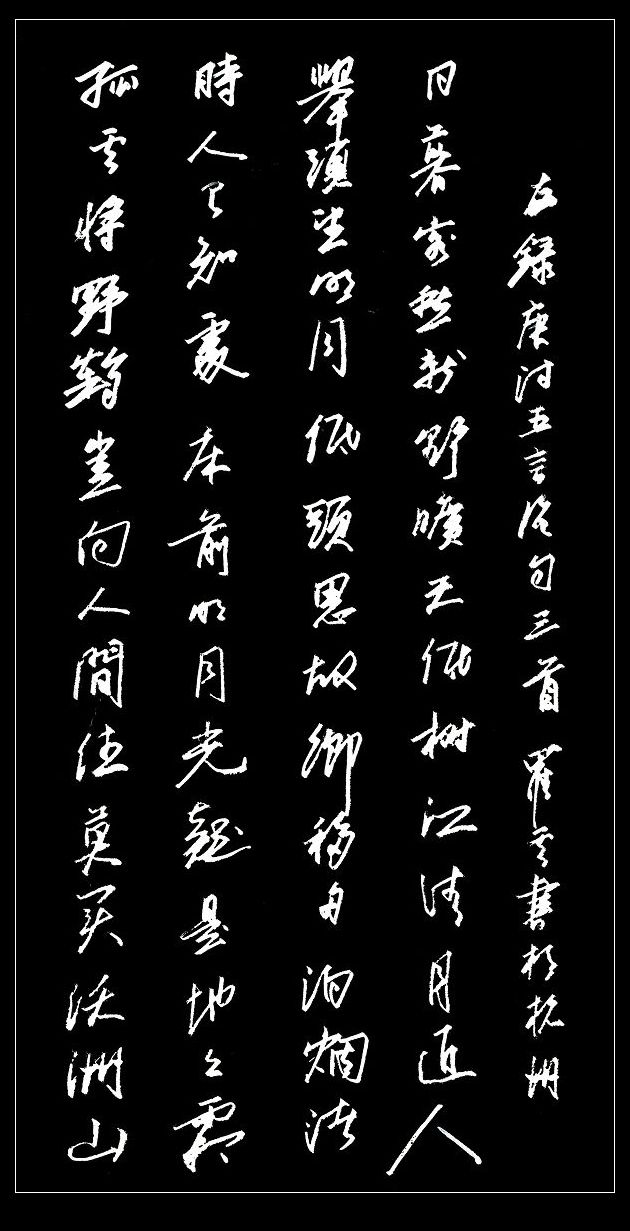 孤云將野鶴豈向人間住莫買沃洲山
時人已知處床前明月光疑是地上霜
舉頭望明月低頭思故鄉移舟泊烟渚
日暮客愁新野曠天低樹江清月近人
左錄唐詩五言絕句三首羅云書於杭州